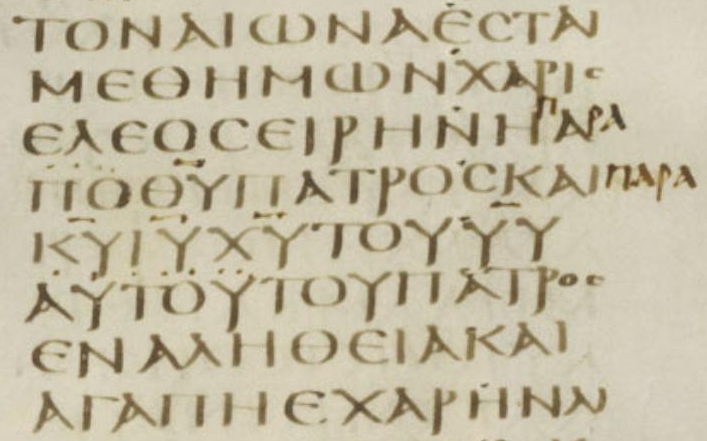 ΤΟΝΑΙΩΝΑΕϹΤΑΙ
ΜΕΘΗΜΩΝΧΑΡΙϹ
ΕΛΕΟϹΕΙΡΗΝΗΠΑΡΑ
ΠΟΘΥ̅ΠΑΤΡΟϹΚΑΙΠΑΡΑ
ΚΥ̅ΙΥ̅ΧΥ̅ΤΟΥΥ̅Υ
ΑΥΤΟΥΤΟΥΠΑΤΡΟϹ
ΕΝΑΛΗΘΕΙΑΚΑΙ
ΑΓΑΠΗΕΧΑΡΗΝΛΙ